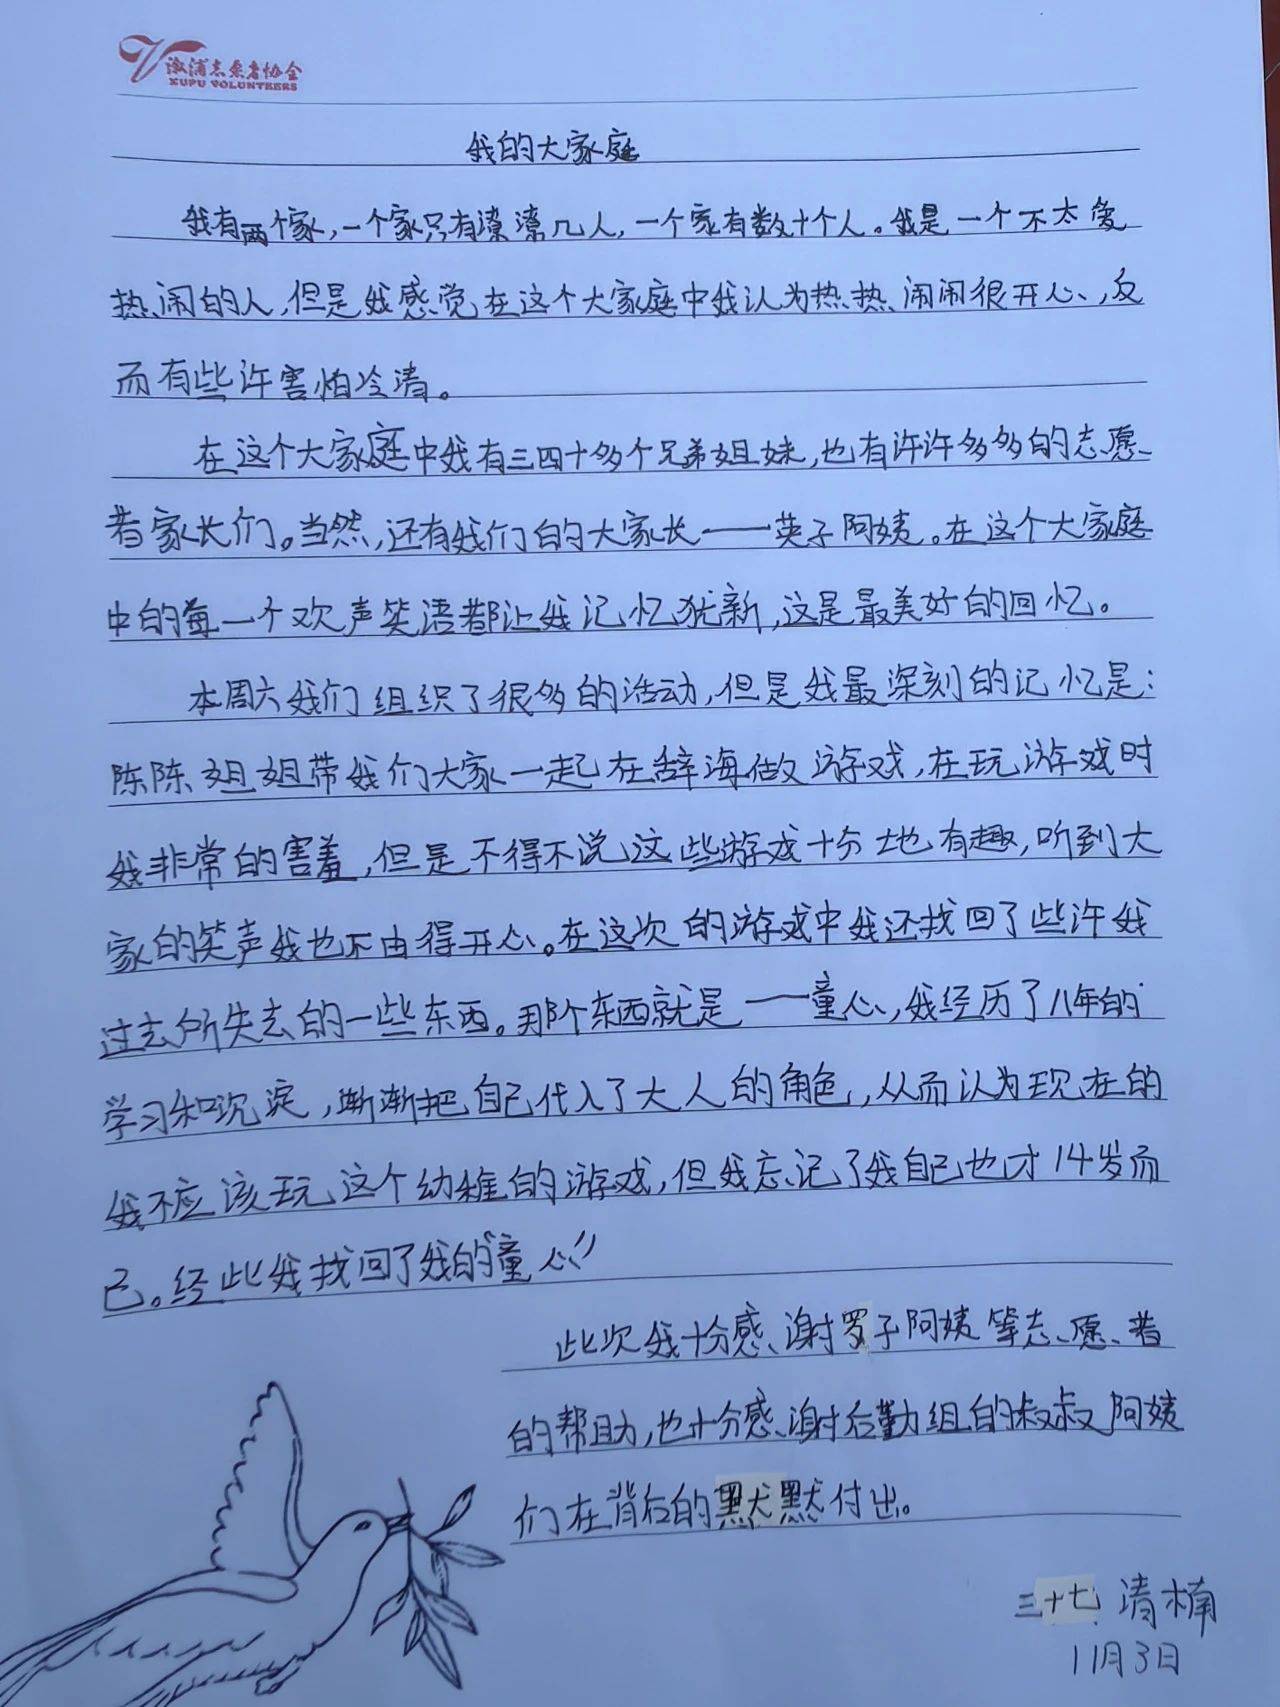 溆浦志愿者协会
XUPU VOLUNTEERS
我的大家庭
我有两个家,一个家只有潦潦几人,一个家有数十个人。我是一个不太爱
热闹的人,但是我感觉在这个大家庭中我认为热热闹闹很开心,反
而有些许害怕冷清。
在这个大家庭中我有三四十多个兄弟姐妹,也有许许多多的志愿
者家长们。当然,还有我们的大家长——英子阿姨。在这个大家庭
中的每一个欢声笑语都让我记忆犹新,这是最美好的回忆。
本周六我们组织了很多的活动,但是我最深刻的记忆是:
陈陈姐姐带我们大家一起在辞海做游戏,在玩游戏时
我非常的害羞,但是不得不说这些游戏十分地有趣,听到大
家的笑声我也不由得开心。在这次的游戏中我还找回了些许我
过去所失去的一些东西。那个东西就是——童心,我经历了八年的
学习和沉淀,渐渐把自己代入了大人的角色,从而认为现在的
我不应该玩这个幼稚的游戏,但我忘记了我自己也才14岁而
已。经此我找回了我的“童心”
此次我十分感谢罗子阿姨等志愿者
的帮助,也十分感谢后勤组的叔叔阿姨
们在背后的默默付出。
三十七 清楠
11月3日